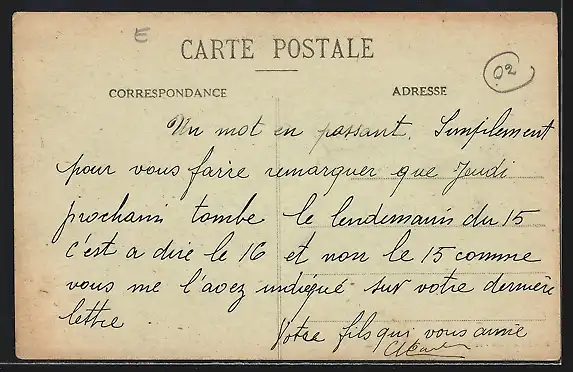 E
CARTE POSTALE
02
CORRESPONDANCE
ADRESSE
Un mot en passant. Simplement
pour vous faire remarquer que Jeudi
prochain tombe le lendemain du 15
c'est a dire le 16 et non le 15 comme
vous me l'avez indiqué sur votre dernière
lettre
Votre fils qui vous aime